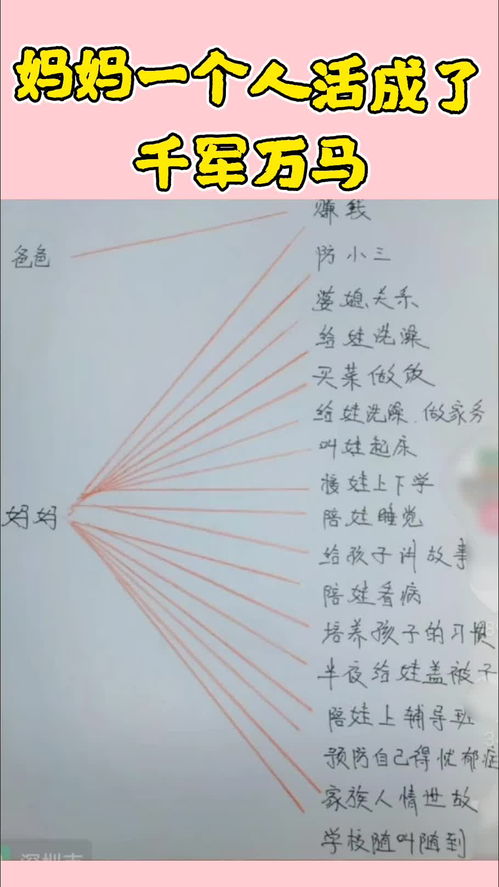 妈妈一个人活成了
千军万马
赚钱
爸爸
防小三
婆媳关系
给娃洗澡
买菜做饭
给娃洗澡.做家务
叫娃起床
接娃上下学
妈妈
陪娃睡觉
给孩子讲故事
陪娃看病
培养孩子的习惯
半夜给娃盖被子
陪娃上辅导班
预防自己得忧郁症
家族人情世故
学校随叫随到
深圳市